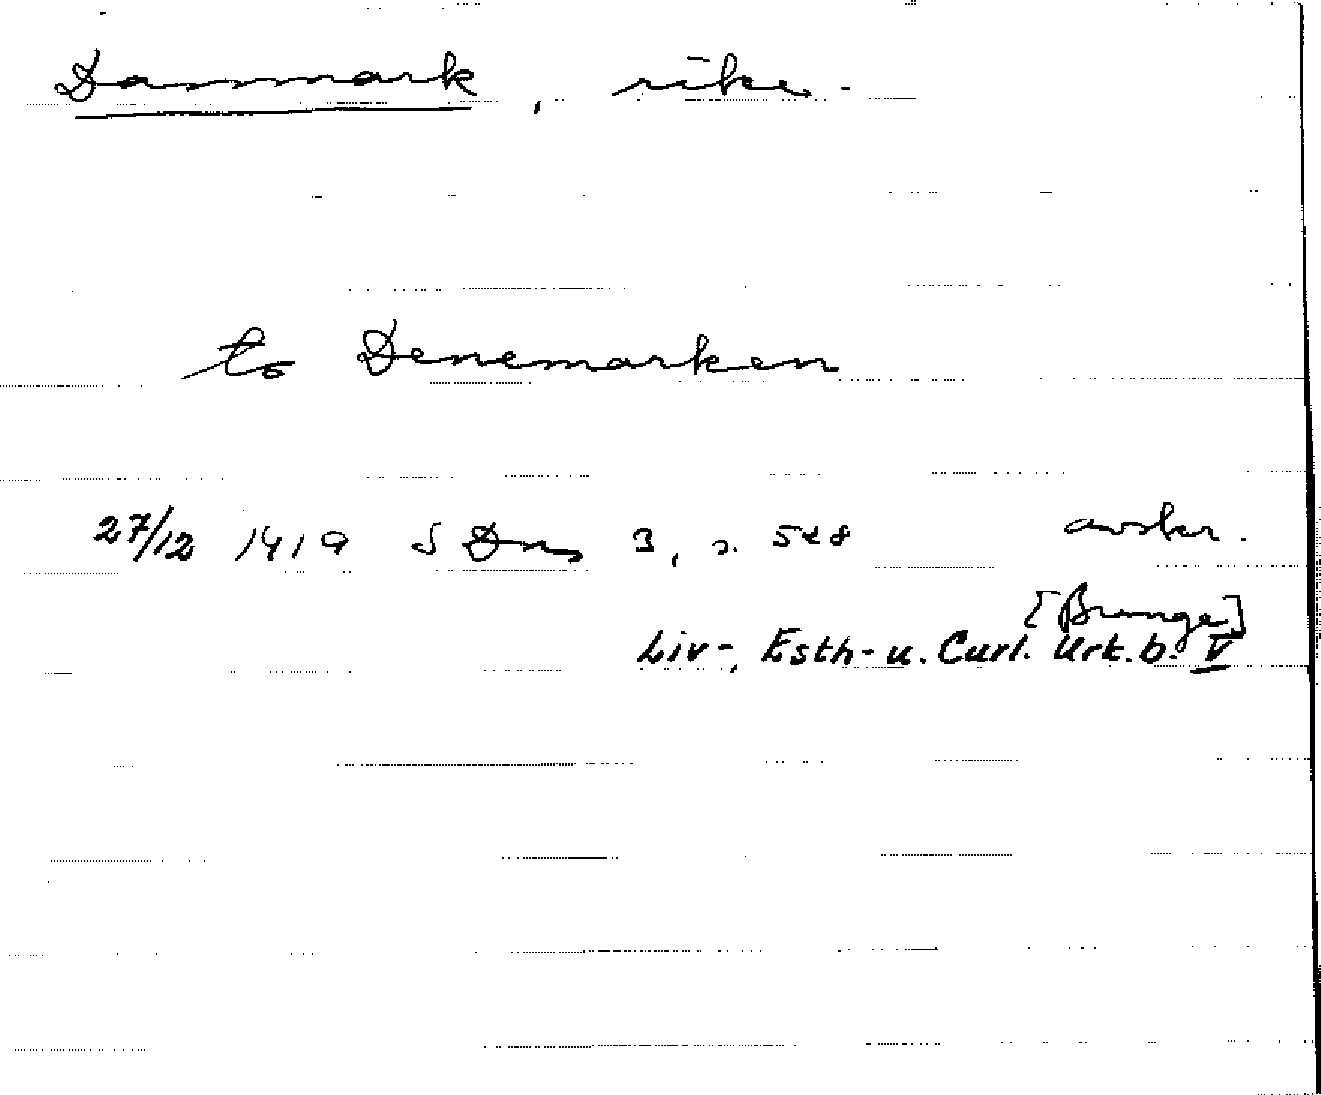 Danmark, rike.
to Denemarken
27/12 1419 SDns 3, s. 528 avskr.
[Bunge]
Liv-, Esth- u. Curl. Urk.b. V